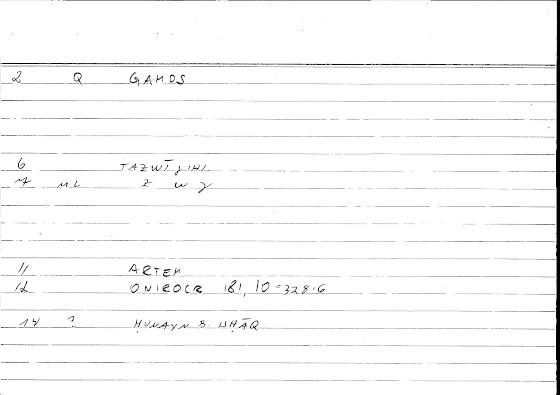 2 Q GAMOS
6 TAZWĪǧIHI
7 ML Z W ǧ
11 ARTEM
12 ONIROCR 181, 10 = 328.6
14 ? ḤUNAYN B. ISḤĀQ